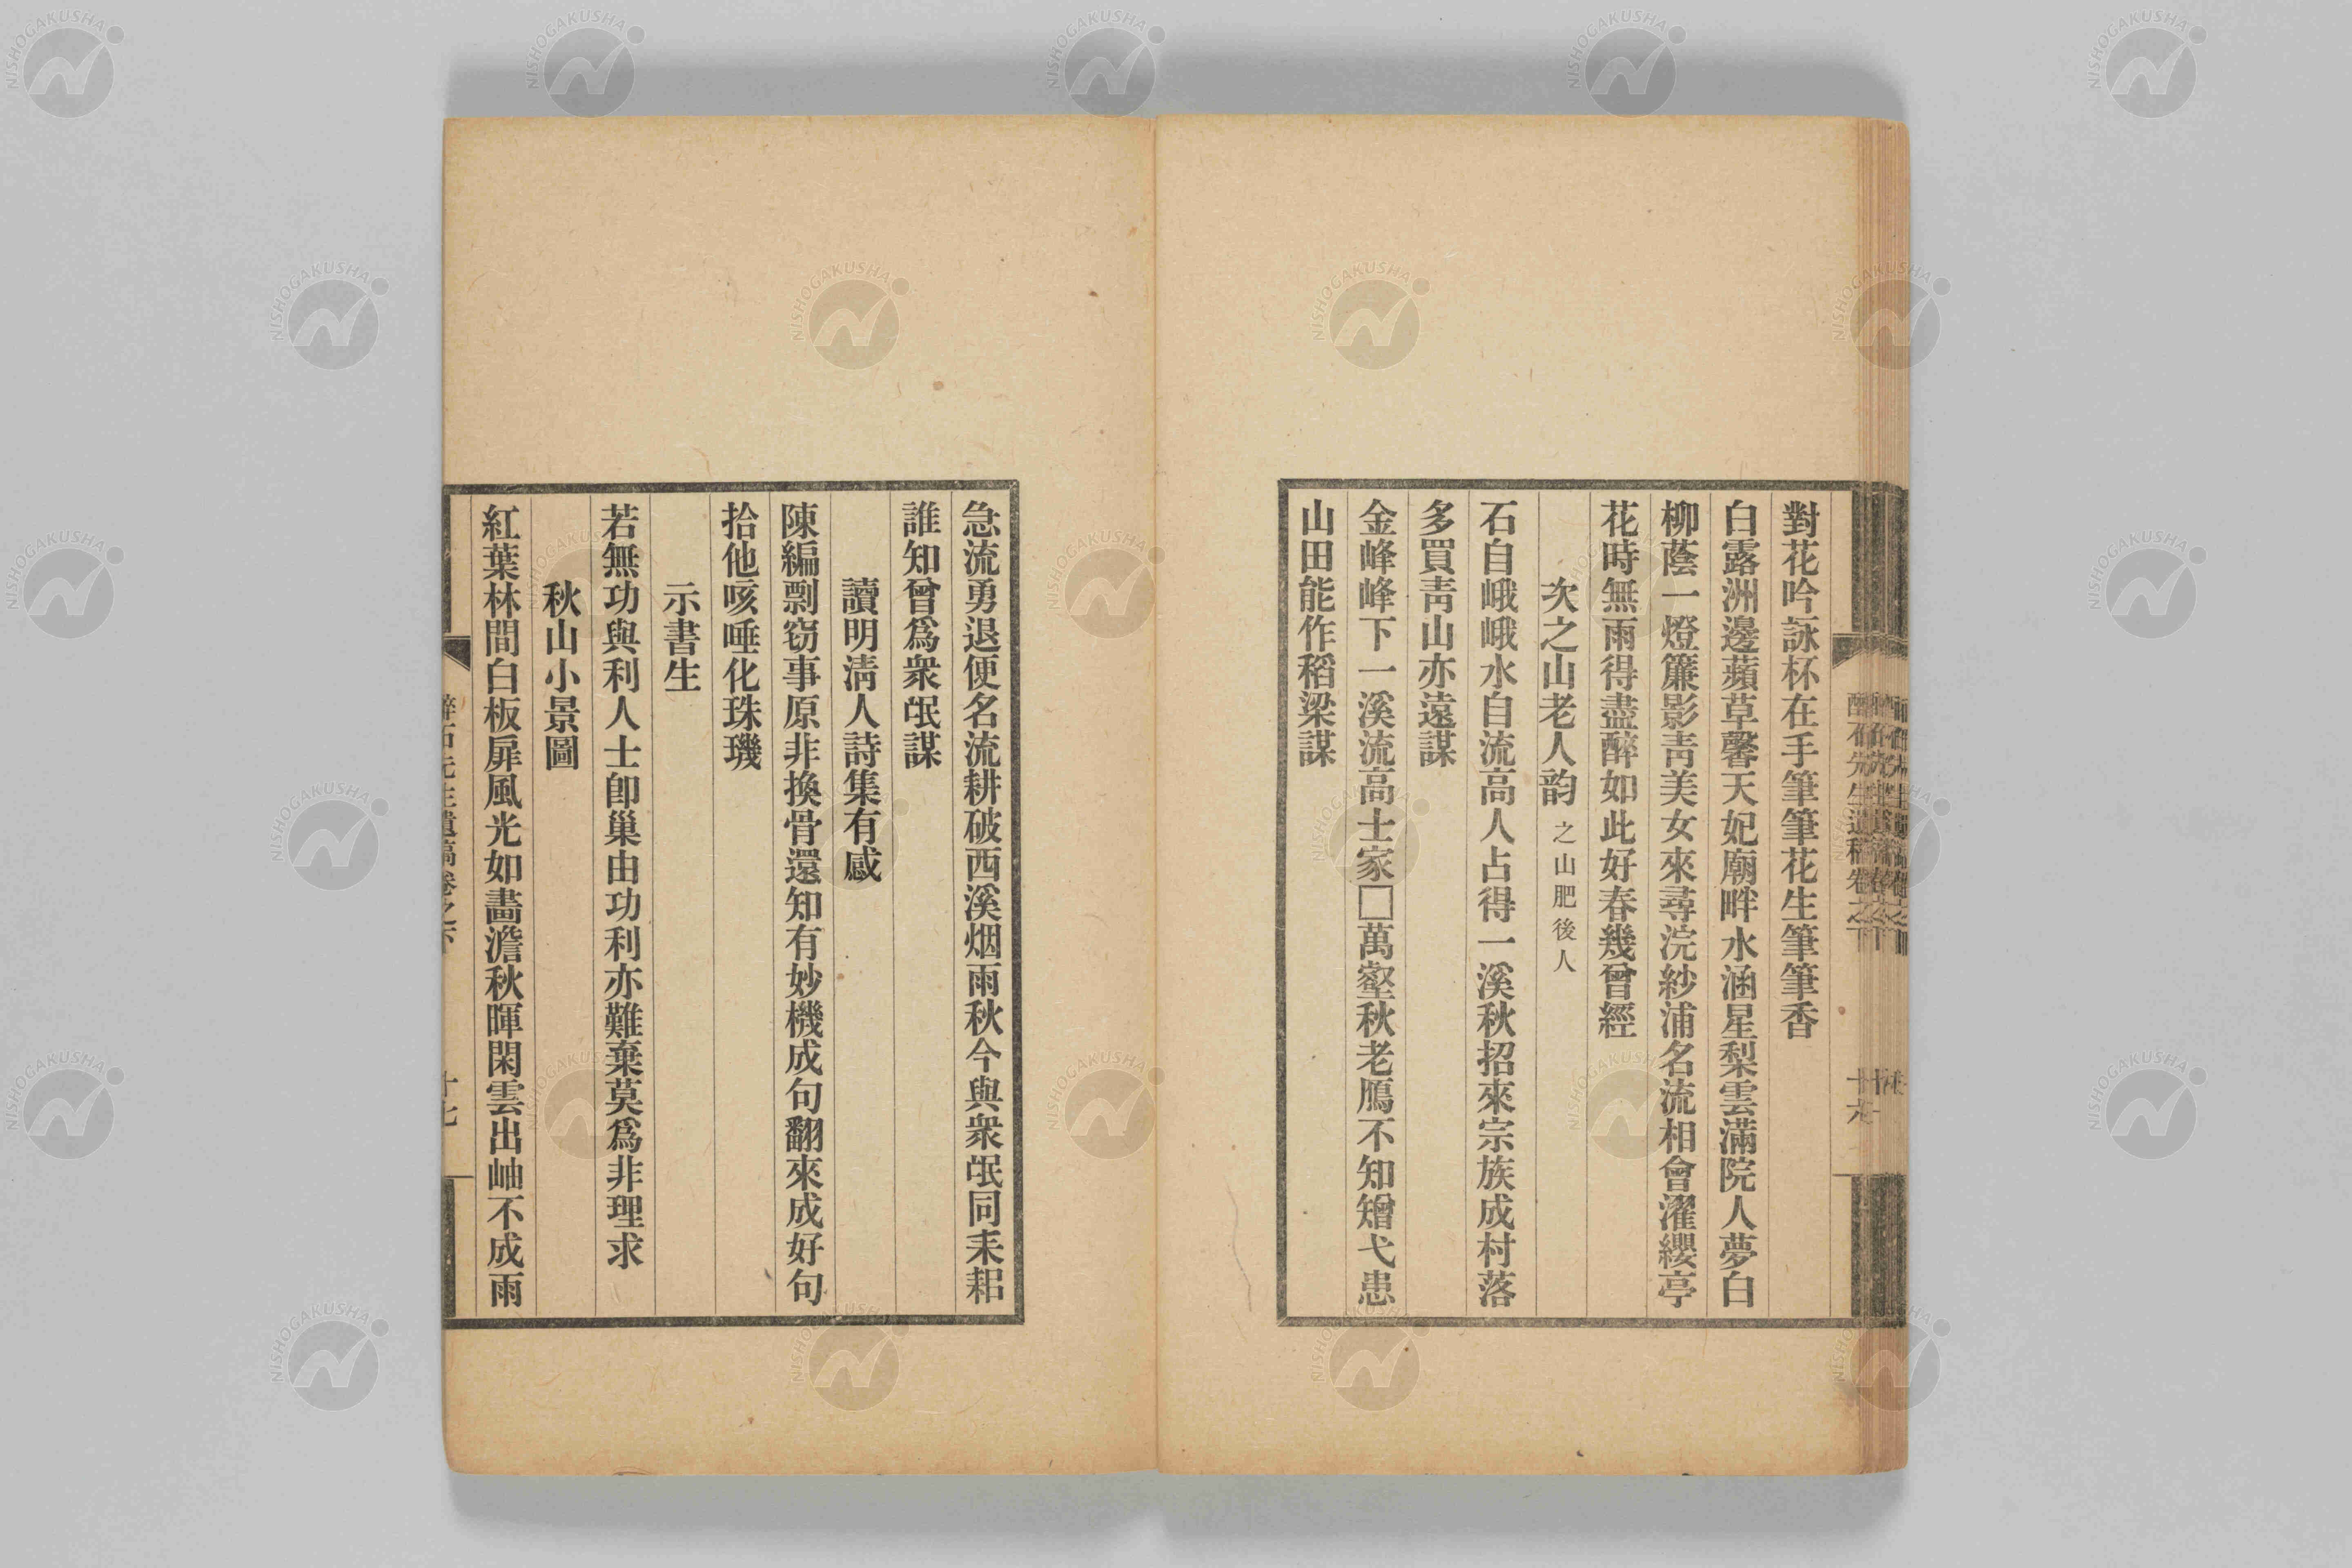 對花吟詠杯在手筆筆花生筆筆香
白露洲邊蘋草馨天妃廟畔水涵星梨雲滿院人夢白
柳蔭一燈簾影靑美女來尋浣紗浦名流相會濯纓亭
花時無雨得盡醉如此好春幾曾經
次之山老人韵 之山肥後人
石自峨峨水自流高人占得一溪秋招來宗族成村落
多買靑山亦遠謀
金峰峰下一溪流高士家□萬壑秋老鴈不知矰弋患
山田能作稻粱謀
急流勇退便名流耕破西溪烟雨秋今與衆氓同耒耜
誰知曾爲衆氓謀
讀明淸人詩集有感
陳編剽窃事原非換骨還知有妙機成句翻來成好句
拾他咳唾化珠璣
示書生
若無功與利人士卽巢由功利亦難棄莫爲非理求
秋山小景圖
紅葉林間白板扉風光如畵澹秋暉閑雲出岫不成雨
醉石先生遺稿卷之下
十七
NISHOGAKUSHA